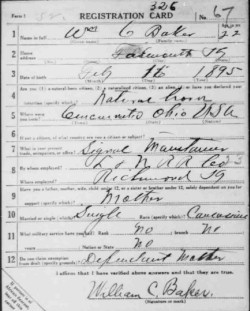 Form 1
326
REGISTRATION CARD
No. 67
1 Name in full Wm C Baker 22
2 Home address Falmouth Ky
3 Date of birth Feby 1895
4 Are you (1) a natural-born citizen, (2) a naturalized citizen, (3) an alien, (4) or have you declared your intention (specify which)? Natural born
5 Where were you born? Cincinnati Ohio USA
6 If not a citizen, of what country are you a citizen or subject?
7 What is your present trade, occupation, or office? Signal Maintainer
8 By whom employed? L & N RR Co
Where employed? Richmond Ky
9 Have you a father, mother, wife, child under 12, or a sister or brother under 12, solely dependent on you for support (specify which)? Mother
10 Married or single (which)? Single Race (specify which)? Caucasian
11 What military service have you had? Rank No ; branch No
years No ; Nation or State No
12 Do you claim exemption from draft (specify grounds)? Dependent Mother
I affirm that I have verified above answers and that they are true.
William C. Baker
(Signature or mark)